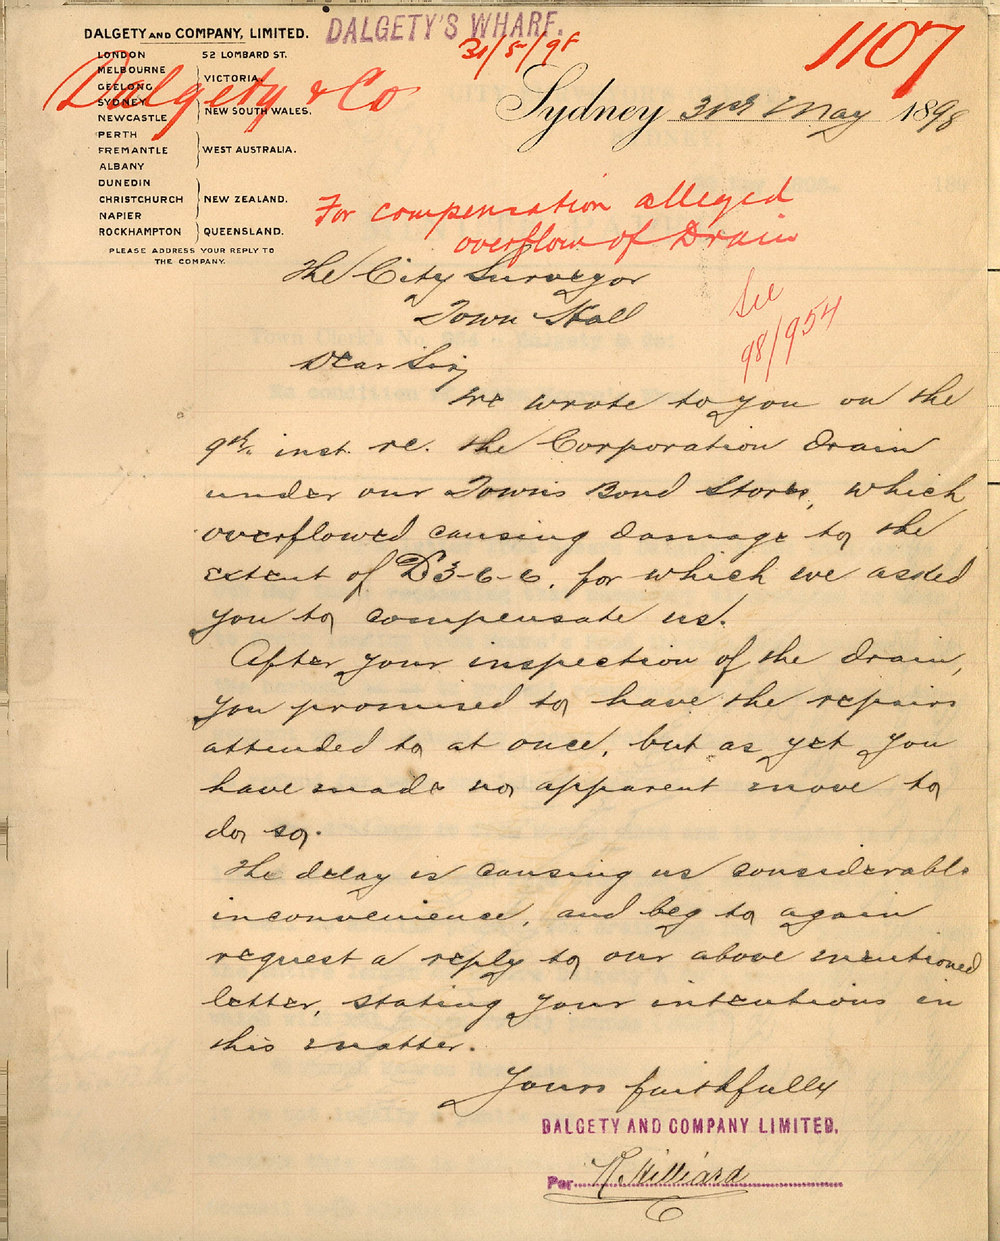 DALGETY AND COMPANY, LIMITED.
LONDON 52 LOMBARD ST.
MELBOURNE
GEELONG
VICTORIA.
SYDNEY
NEWCASTLE
NEW SOUTH WALES.
PERTH
FREMANTLE
ALBANY
WEST AUSTRALIA.
DUNEDIN
CHRISTCHURCH
NAPIER
NEW ZEALAND.
ROCKHAMPTON QUEENSLAND.
PLEASE ADDRESS YOUR REPLY TO
THE COMPANY.
Dalgety & Co
DALGETY'S WHARF.
31/5/98
1107
Sydney 31st May 1898
For compensation alleged
overflow of Drain
See
98/954
The City Surveyor
Town Hall
Dear Sir,
We wrote to you on the
9th. inst. re. the Corporation drain
under our Towns Bond Stores, which
overflowed causing damage to the
extent of £3-6-6, for which we asked
you to compensate us.
After your inspection of the drain,
you promised to have the repairs
attended to at once, but as yet you
have made no apparent move to
do so.
The delay is causing us considerable
inconvenience, and beg to again
request a reply to our above mentioned
letter, stating your intentions in
this matter.
Yours faithfully
DALGETY AND COMPANY LIMITED.
Per Hilliard